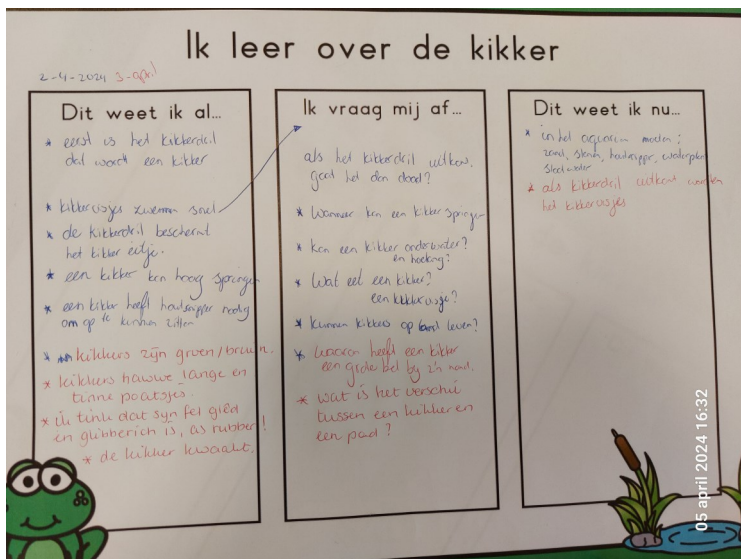 Ik leer over de kikker
2-4-2024 3-april
Dit weet ik al...
* eerst is het kikkerdril
dat wordt een kikker
* kikkervisjes zwemmen snel
* de kikkerdril beschermt
het kikker eitje.
* een kikker kan hoog springen
* een kikker heeft houtsnipper nodig
om op te kunnen zitten
* kikkers zijn groen/bruin.
* kikkers hawwe lange en
tinne poatsjes.
* ik tink dat syn fel glêd
en glibberich is, as rubber!
* de kikker kwaakt.
Ik vraag mij af...
als het kikkerdril uitkomt,
gaat het dan dood?
* Wanneer kan een kikker springen
* kan een kikker onderwater?
en hoelang?
* Wat eet een kikker?
een kikkervisje?
* kunnen kikkers op land leven?
* waarom heeft een kikker
een grote bel bij z'n mond.
* wat is het verschil
tussen een kikker en
een pad?
Dit weet ik nu...
* in het aquarium moeten:
zand, stenen, houtsnipper, waterplanten
slootwater
* als kikkerdril uitkomt worden
het kikkervisjes
05 april 2024 16:32